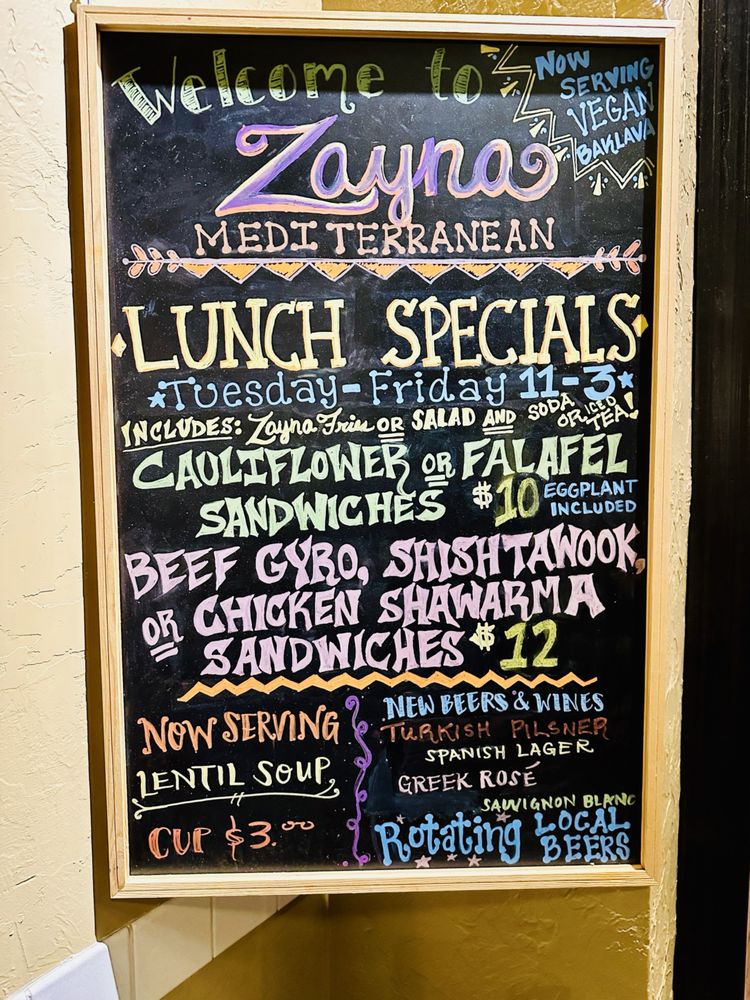 Welcome to
Zayna
MEDITERRANEAN
NOW
SERVING
VEGAN
BAKLAVA
LUNCH SPECIALS
Tuesday-Friday 11-3
INCLUDES: Zayna Fries OR SALAD AND SODA OR ICED TEA!
CAULIFLOWER OR FALAFEL
SANDWICHES $10 EGGPLANT INCLUDED
BEEF GYRO, SHISHTAWOOK,
OR CHICKEN SHAWARMA
SANDWICHES $12
NOW SERVING
LENTIL SOUP
CUP $3.00
NEW BEERS & WINES
TURKISH PILSNER
SPANISH LAGER
GREEK ROSÉ
SAUVIGNON BLANC
Rotating LOCAL BEERS